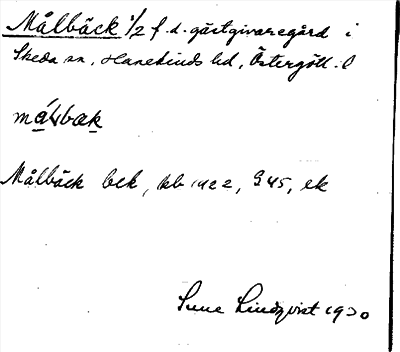 Målbäck 1/2 f.d. gästgivaregård i
Skeda sn, Hanekinds hd, Östergötl. l
målbæk
Målbäck bek, kb 1922, G 45, ek
Sune Lindqvist 1930